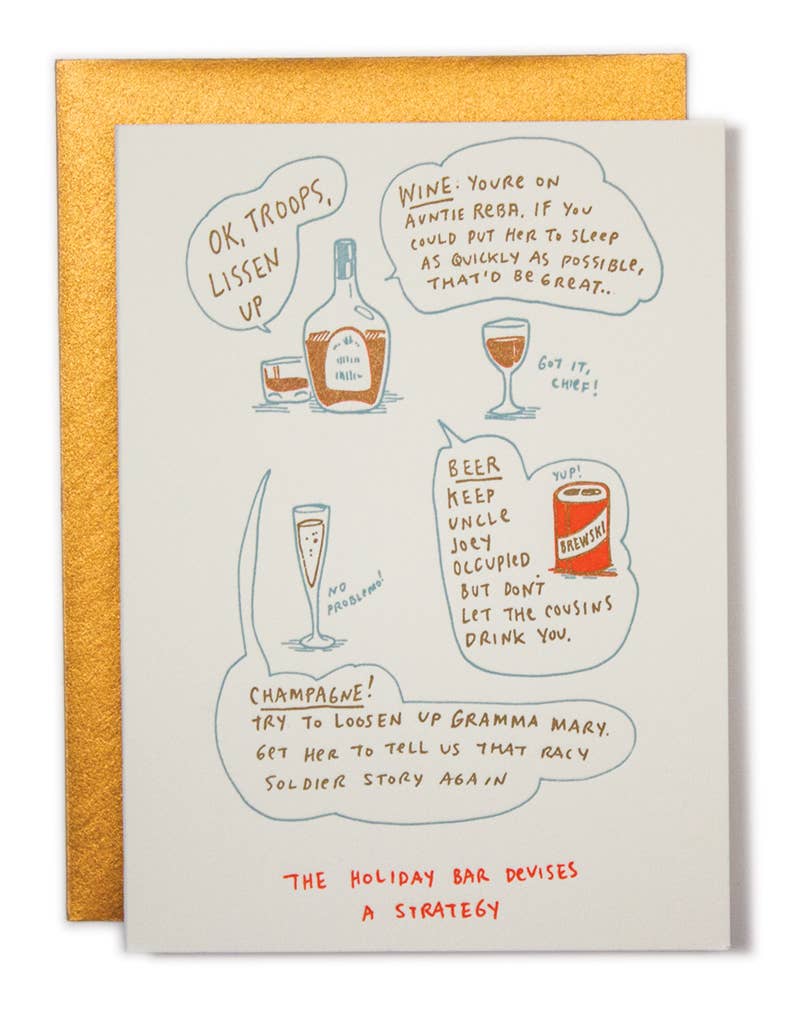 OK, TROOPS,
LISSEN
UP
WINE: YOU'RE ON
AUNTIE REBA. IF YOU
COULD PUT HER TO SLEEP
AS QUICKLY AS POSSIBLE,
THAT'D BE GREAT..
GOT IT,
CHIEF!
BEER
KEEP
UNCLE
JOEY
OCCUPIED.
BUT DON'T
LET THE COUSINS
DRINK YOU.
YUP!
BREWSKI
NO
PROBLEMO!
CHAMPAGNE!
TRY TO LOOSEN UP GRAMMA MARY.
GET HER TO TELL US THAT RACY
SOLDIER STORY AGAIN
THE HOLIDAY BAR DEVISES
A STRATEGY